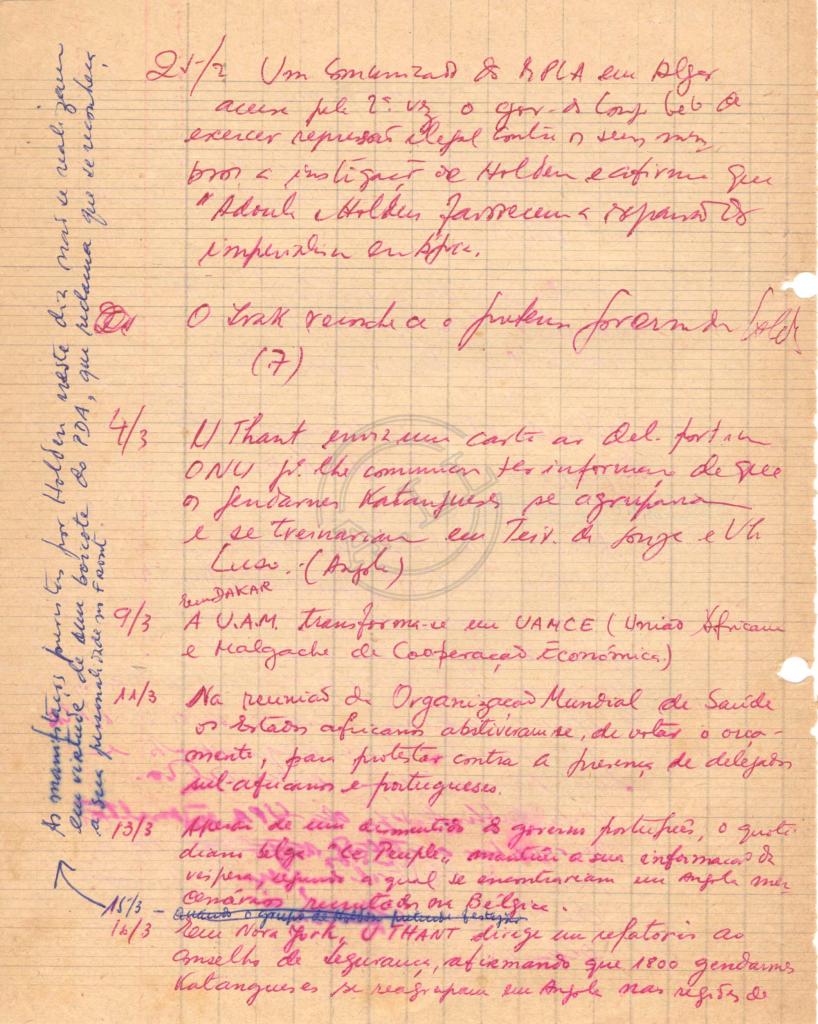 25/2 Um comunicado do MPLA em Alger
acusa pela 2ª. vez o gov. do Congo Léo de
exercer repressão ilegal contra os seus mem
bros a instigação de Holden e afirma que
"Adoula e Holden favorecem a expansão do
imperialismo em África.
O Irak reconhece o pretenso governo de Holden
(7)
4/3 U Thant envia uma carta ao Del. port. na
ONU p. lhe comunicar ter informações de que
os gendarmes Katangueses se agrupariam
e se treinariam em Teix. de Sousa e Vila
Luso. (Angola)
em DAKAR
9/3 A U.A.M. transforma-se em UAMCE (União Africana
e Malgache de Cooperação Económica)
11/3 Na reunião da Organização Mundial de Saúde
os Estados africanos abstiveram-se, de votar o orça-
mento, para protestar contra a presença de delegados
sul-africanos e portugueses.
13/3 Apesar de um desmentido do governo português, o quoti
diano belga "Le Peuple", mantém a sua informação da
véspera, segundo a qual se encontrariam em Angola mer
cenários recrutados na Bélgica.
15/3 - Quando o grupo de Holden pretende festejar
16/3 Em Nova York, U THANT dirige um relatório ao
Conselho de Segurança, afirmando que 1800 gendarmes
Katangueses se reagrupam em Angola nas regiões de
As manifestações previstas por Holden neste dia não se realizam
em virtude de um boicote do PDA, que reclama que se reconheça
a sua personalidade no Front.